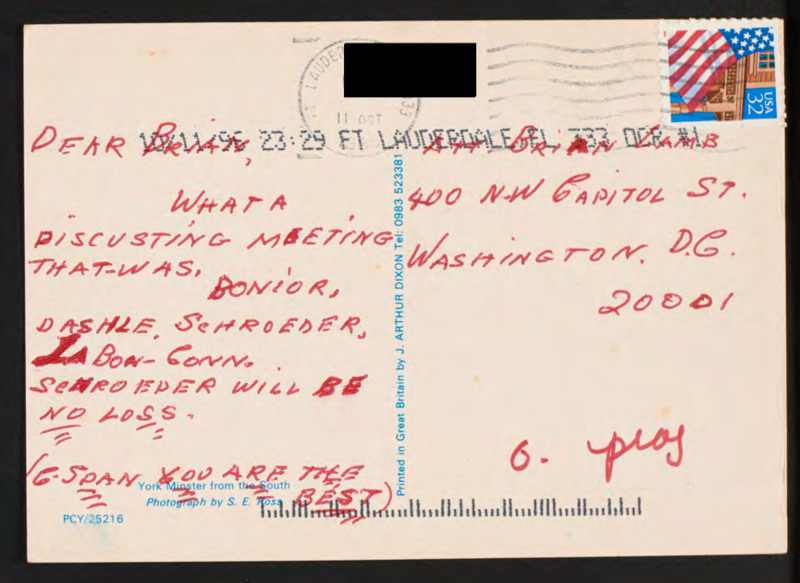 FT LAUDER
11 OCT
USA
32
10/11/96 23:29 FT LAUDERDALE, FL 333 DCR #1
DEAR BRIAN,
WHAT A
DISCUSTING MEETING
THAT-WAS.
BONIOR,
DASHLE, SCHROEDER,
LA BON-CONN.
SCHROEDER WILL BE
NO LOSS.
(C-SPAN YOU ARE THE
BEST)
ATT BRIAN LAMB
400 N-W CAPITOL ST.
WASHINGTON, D.C.
20001
Printed in Great Britain by J. ARTHUR DIXON Tel: 0983 523381
York Minster from the South
Photograph by S. E. Ross
PCY/25216